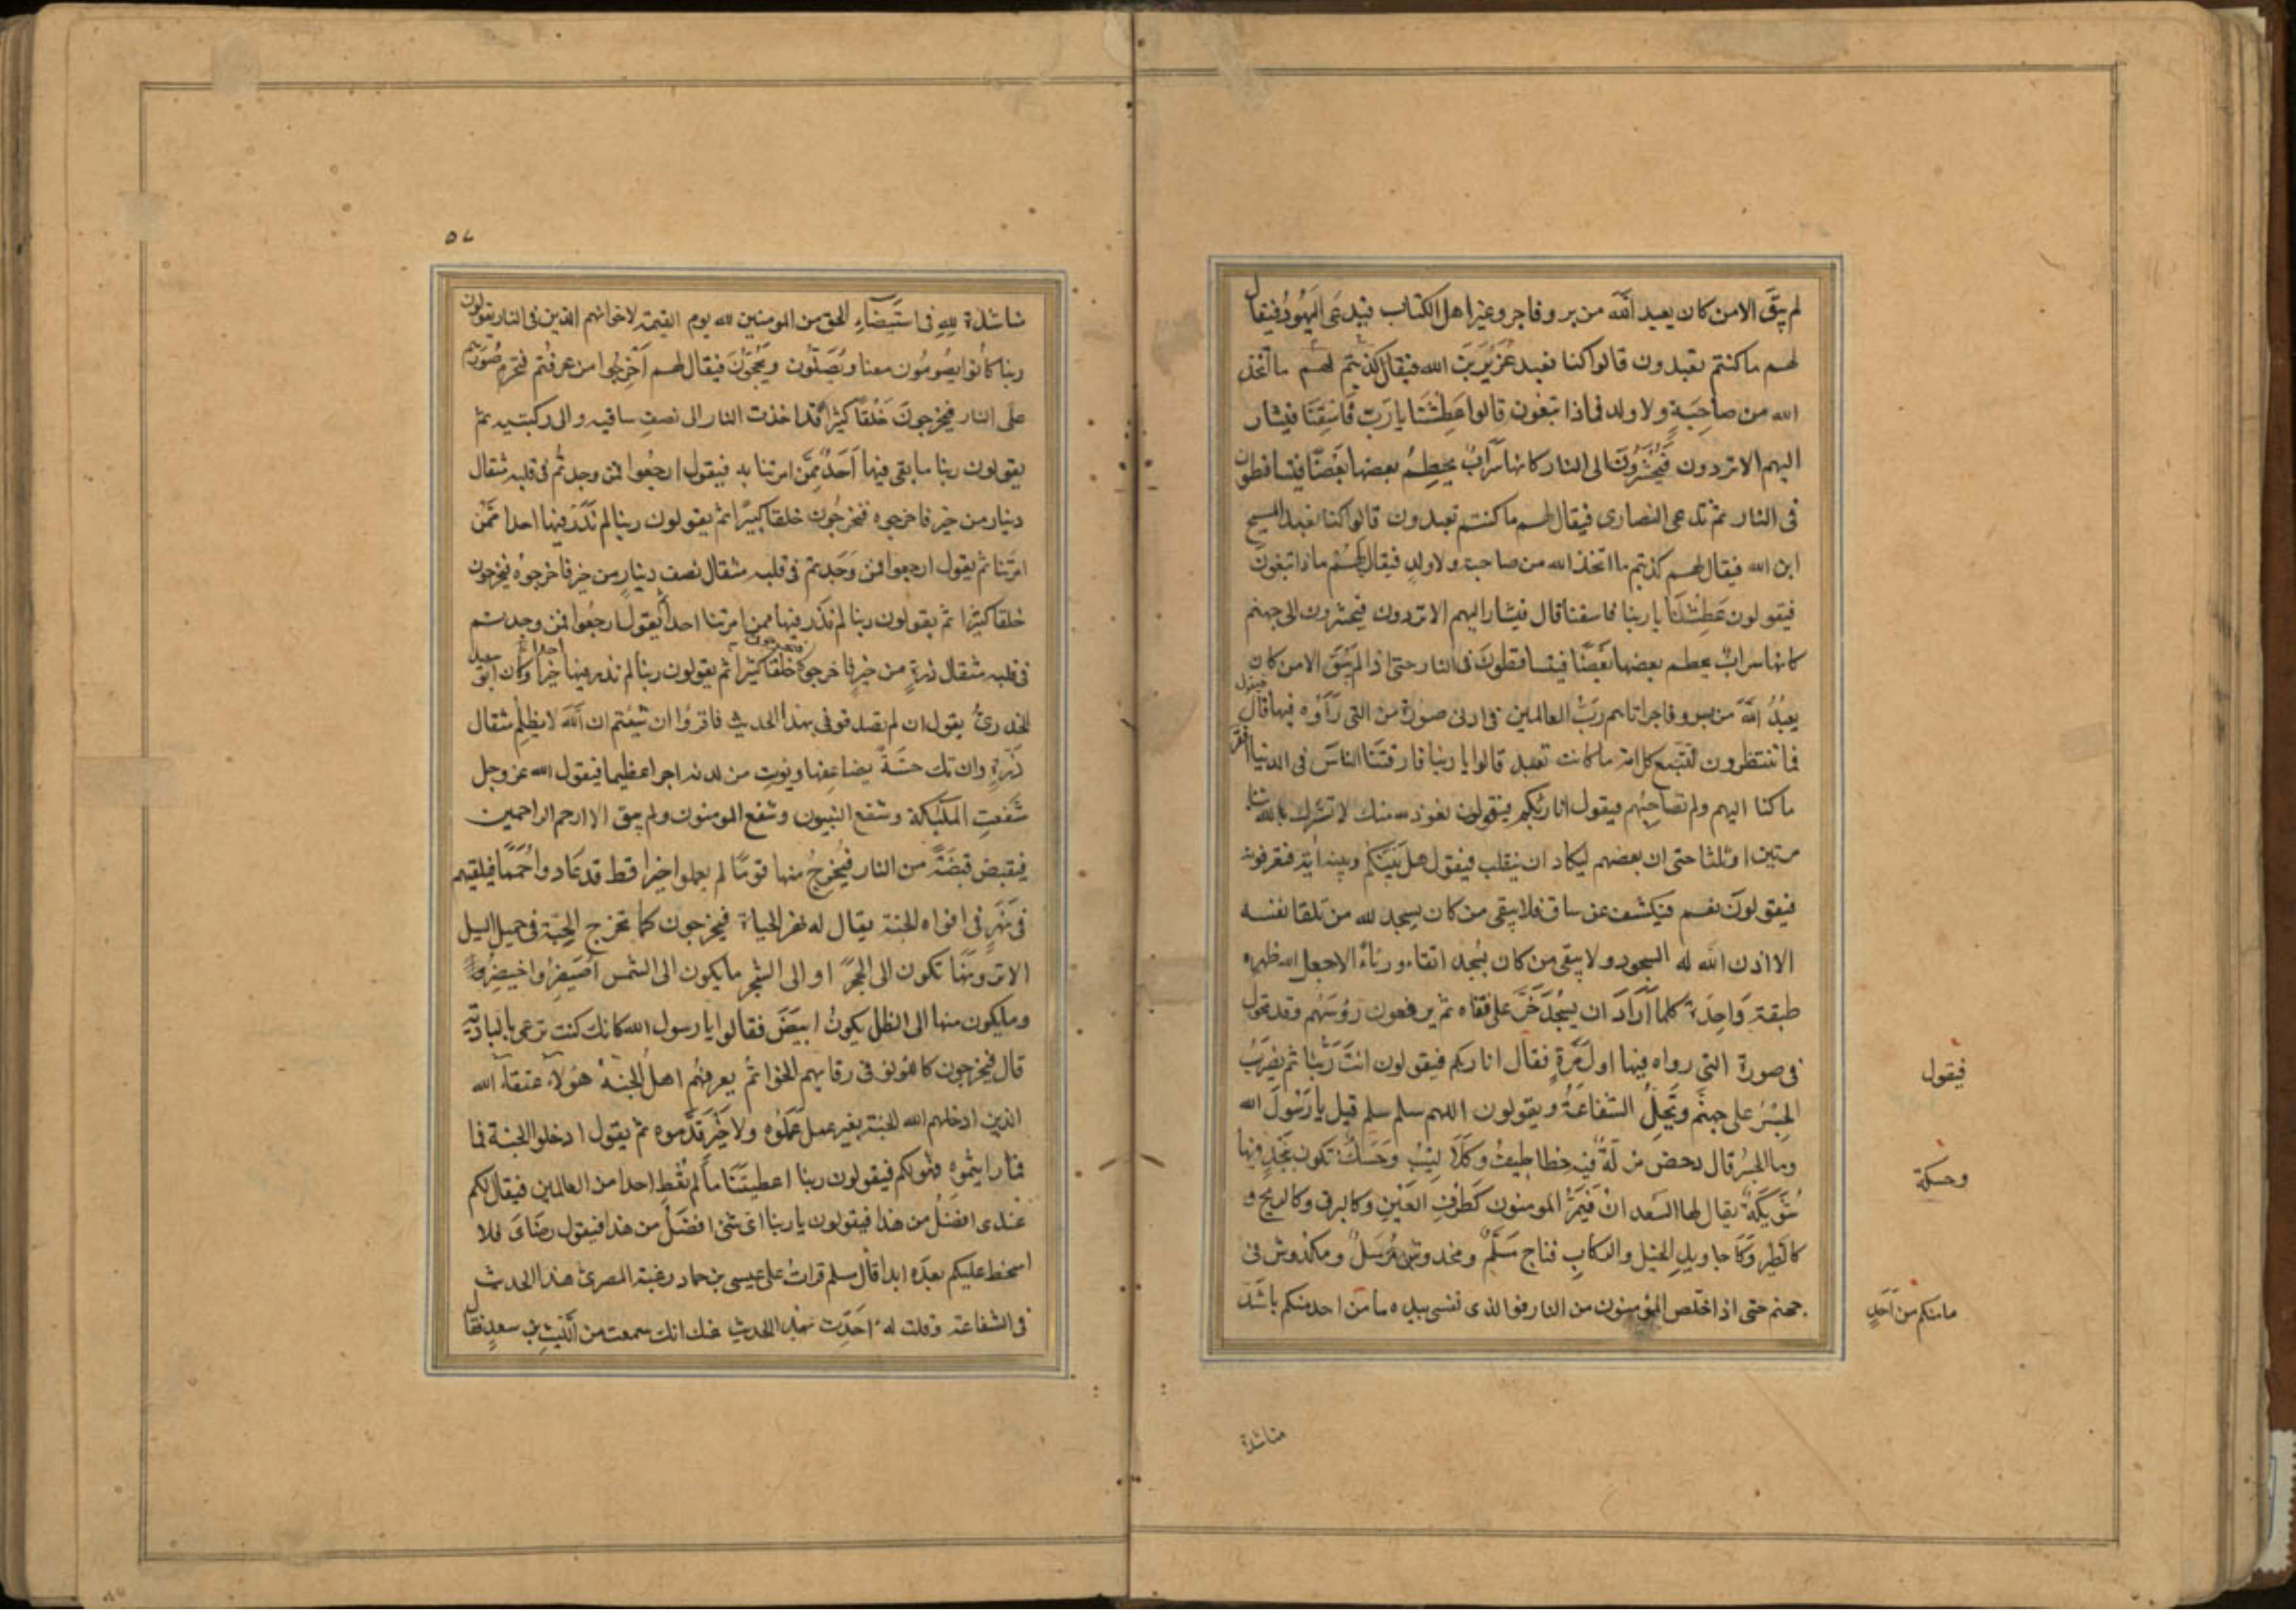 لم يبق الا من كان يعبد الله من بر وفاجر وغير اهل الكتاب فيدعى اليهود فيقال
لهم ما كنتم تعبدون قالوا كنا نعبد عزير بن الله فيقال كذبتم لهم ما اتخذ
الله من صاحبة ولا ولد فماذا تبغون قالوا عطشنا يا رب فاسقنا فيشار
اليهم الا تردون فيحشرون الى النار كانها سراب يحطم بعضها بعضا فيتساقطون
فى النار ثم تدعى النصارى فيقال لهم ما كنتم تعبدون قالوا كنا نعبد المسيح
ابن الله فيقال لهم كذبتم ما اتخذ الله من صاحبة ولا ولد فيقال لهم ماذا تبغون
فيقولون عطشنا يا ربنا فاسقنا قال فيشار اليهم الا تردون فيحشرون الى جهنم
كانها سراب يحطم بعضها بعضا فيتساقطون فى النار حتى اذا لم يبق الا من كان
يعبد الله من بر وفاجر اتاهم رب العالمين فى ادنى صورة من التى رأوه فيها قال فيقول
فما تنتظرون لتتبع كل امة ما كانت تعبد قالوا يا ربنا فارقنا الناس فى الدنيا افقر
ما كنا اليهم ولم نصاحبهم فيقول انا ربكم فيقولون نعوذ بالله منك لا نشرك بالله شيا
مرتين او ثلثا حتى ان بعضهم ليكاد ان ينقلب فيقول هل بينكم وبينه اية فتعرفونه
فيقولون نعم فيكشف عن ساق فلا يبقى من كان يسجد لله من تلقا نفسه
الا اذن الله له السجود ولا يبقى من كان يسجد اتقاء ورئاء الا جعل الله ظهره
طبقة واحدة كلما اراد ان يسجد خر على قفاه ثم يرفعون رؤسهم وقد تحول
فى صورة التى رواه فيها اول مرة فقال انا ربكم فيقولون انت ربنا ثم يضرب
الجسر على جهنم وتحل الشفاعة ويقولون اللهم سلم سلم قيل يا رسول الله
وما الجسر قال دحض مزلة فيه خطاطيف وكلاليب وحسك تكون بنجد فيها
شويكة يقال لها السعدان فيمر المومنون كطرف العين وكالبرق وكالريح و
كالطير وكاجاويد الخيل والركاب فناج مسلم ومخدوش مرسل ومكدوش فى
جهنم حتى اذا خلص المؤمنون من النار فوالذى نفسى بيده ما من احد منكم باشد
فيقول
وحسكة
ما منكم من احد
مناشدة
٥٧
مناشدة لله فى استيضاء الحق من المومنين لله يوم القيمة لاخوانهم الذين فى النار يقولون
ربنا كانوا يصومون معنا ويصلون ويحجون فيقال لهم اخرجوا من عرفتم فتحرم صورهم
على النار فيخرجون خلقا كثيرا قد اخذت النار الى نصف ساقيه والى ركبتيه ثم
يقولون ربنا ما بقى فيها احد ممن امرتنا به فيقول ارجعوا فمن وجدتم فى قلبه مثقال
دينار من خير فاخرجوه فيخرجون خلقا كثيرا ثم يقولون ربنا لم نذر فيها احدا ممن
امرتنا ثم يقول ارجعوا فمن وجدتم فى قلبه مثقال نصف دينار من خير فاخرجوه فيخرجون
خلقا كثيرا ثم يقولون ربنا لم نذر فيها ممن امرتنا احدا ثم يقول ارجعوا فمن وجدتم
فى قلبه مثقال ذرة من خير فاخرجوه فيخرجون خلقا كثيرا ثم يقولون ربنا لم نذر فيها خيرا وكان ابو سعيد
الخدرى يقول ان لم تصدقوفى بهذا الحديث فاقرؤا ان شئتم ان الله لا يظلم مثقال
ذرة وان تك حسنة يضاعفها ويوت من لدنه اجرا عظيما فيقول الله عز وجل
شفعت الملئكة وشفع النبيون وشفع المومنون ولم يبق الا ارحم الراحمين
فيقبض قبضة من النار فيخرج منها قوما لم يعملوا خيرا قط قد عادوا حمما فيلقيهم
فى نهر فى افواه الجنة يقال له نهر الحياة فيخرجون كما تخرج الحبة فى حميل السيل
الا ترونها تكون الى الحجر او الى الشجر ما يكون الى الشمس اصيفر واخيضر
وما يكون منها الى الظل يكون ابيض فقالوا يا رسول الله كانك كنت ترعى بالبادية
قال فيخرجون كاللولؤ فى رقابهم الخواتم يعرفهم اهل الجنة هؤلاء عتقاء الله
الذين ادخلهم الله الجنة بغير عمل عملوه ولا خير قدموه ثم يقول ادخلوا الجنة فما
فما رايتموه فهو لكم فيقولون ربنا اعطيتنا ما لم تعط احدا من العالمين فيقال لكم
عندى افضل من هذا فيقولون يا ربنا اى شئ افضل من هذا فيقول رضاى فلا
اسخط عليكم بعده ابدا قال مسلم قرات على عيسى بن حماد زغبة المصرى هذا الحديث
فى الشفاعة وقلت له احدث بهذا الحديث عنك انك سمعت من الليث بن سعد فقال